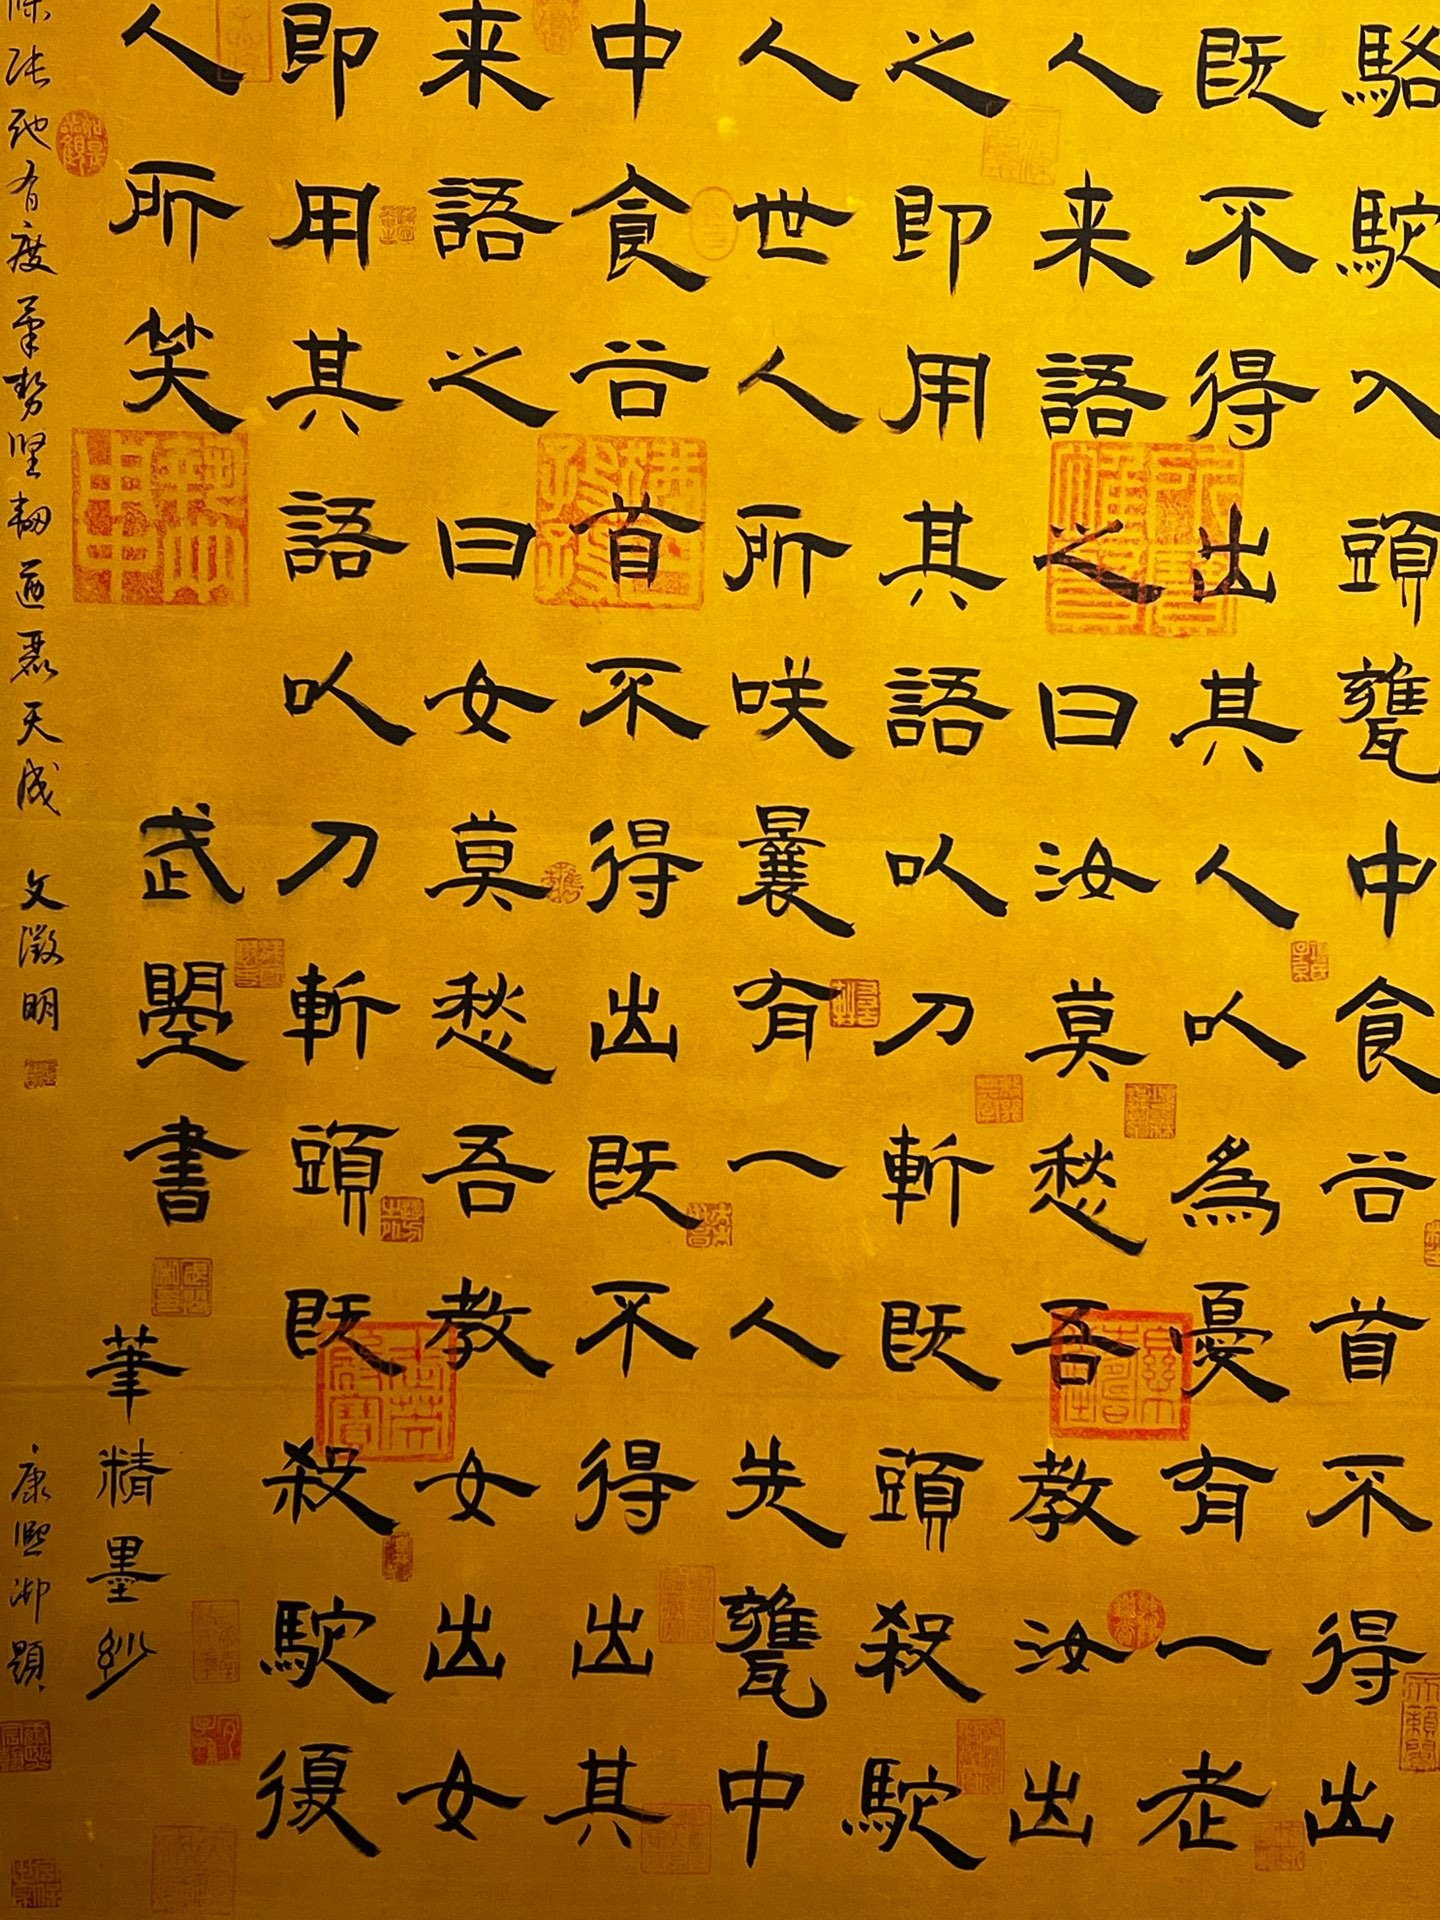 駱駝入頭甕中食谷首不得出
既不得出其人以為憂有一老
人来語之曰汝莫愁吾教汝出
之即用其語以刀斬頭既殺駝
人世人所咲曩有一人先甕中
中食谷首不得出既不得出其
来語之曰女莫愁吾教女出女
即用其語以刀斬頭既殺駝復
人所笑
武曌書
筆精墨玅
张弛有度筆势坚韧遒丽天成 文徵明
康熙御題